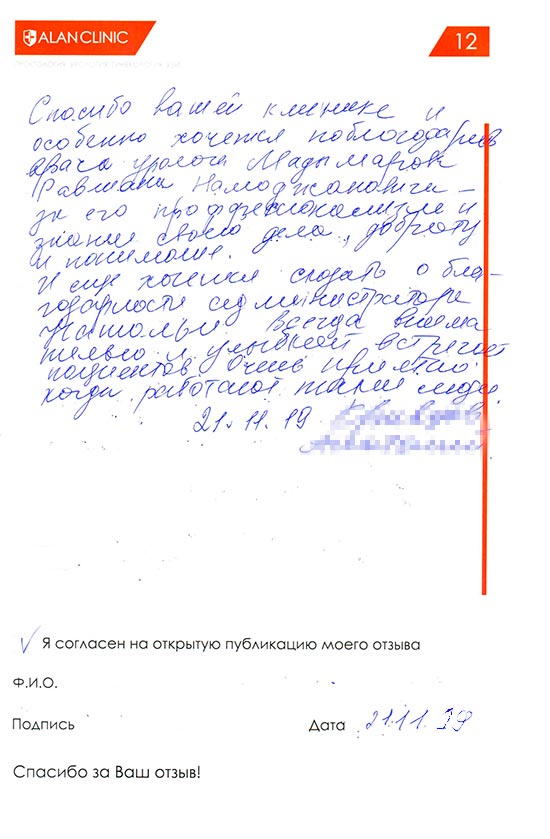 ALAN CLINIC
12
ПРОКТОЛОГИЯ УРОЛОГИЯ ГИНЕКОЛОГИЯ УЗИ
Спасибо вашей клинике и
особенно хочется поблогодарить
врача уролога Мадымаров
Равшана Намоджановича –
за его профессионализм и
знание своего дела, доброту
и понимание.
И еще хочется сказать о бла-
годарности администратора
Натальи. Всегда внима
тельно и улыбкой встречает
пациентов. Очень приятно
когда работают такие люди.
21.11.19
Я согласен на открытую публикацию моего отзыва
Ф.И.О.
Подпись
Дата 21.11.19
Спасибо за Ваш отзыв!